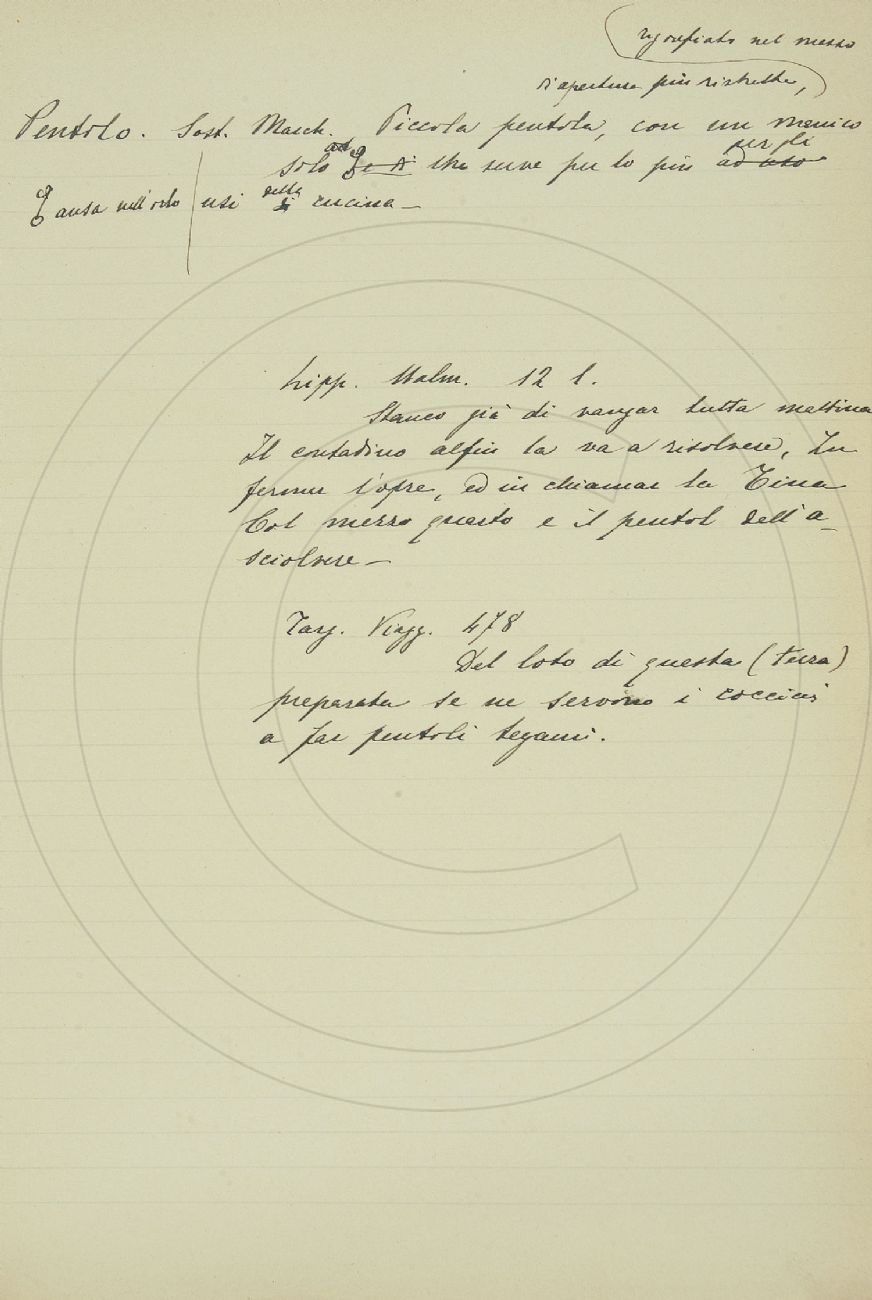 rigonfiato nel mezzo
d'apertura più ristretta,
Pentolo. Sost. Masch. Piccola pentola, con un manico
solo ad che serve per lo più ad uso per gli
ansa nell'orlo usi della di cucina —
Lipp. Malm. 12 1.
Stanco già di vangar tutta mattina
Il contadino alfin la va a risolvere, In
fermar l'opre, ed in chiamar la Tina
Col mezzo quarto e il pentol dell'a-
sciolvere —
Targ. Viagg. 478
Del loto di questa (terra)
preparata se ne servono i cocciai
a far pentoli tegami.